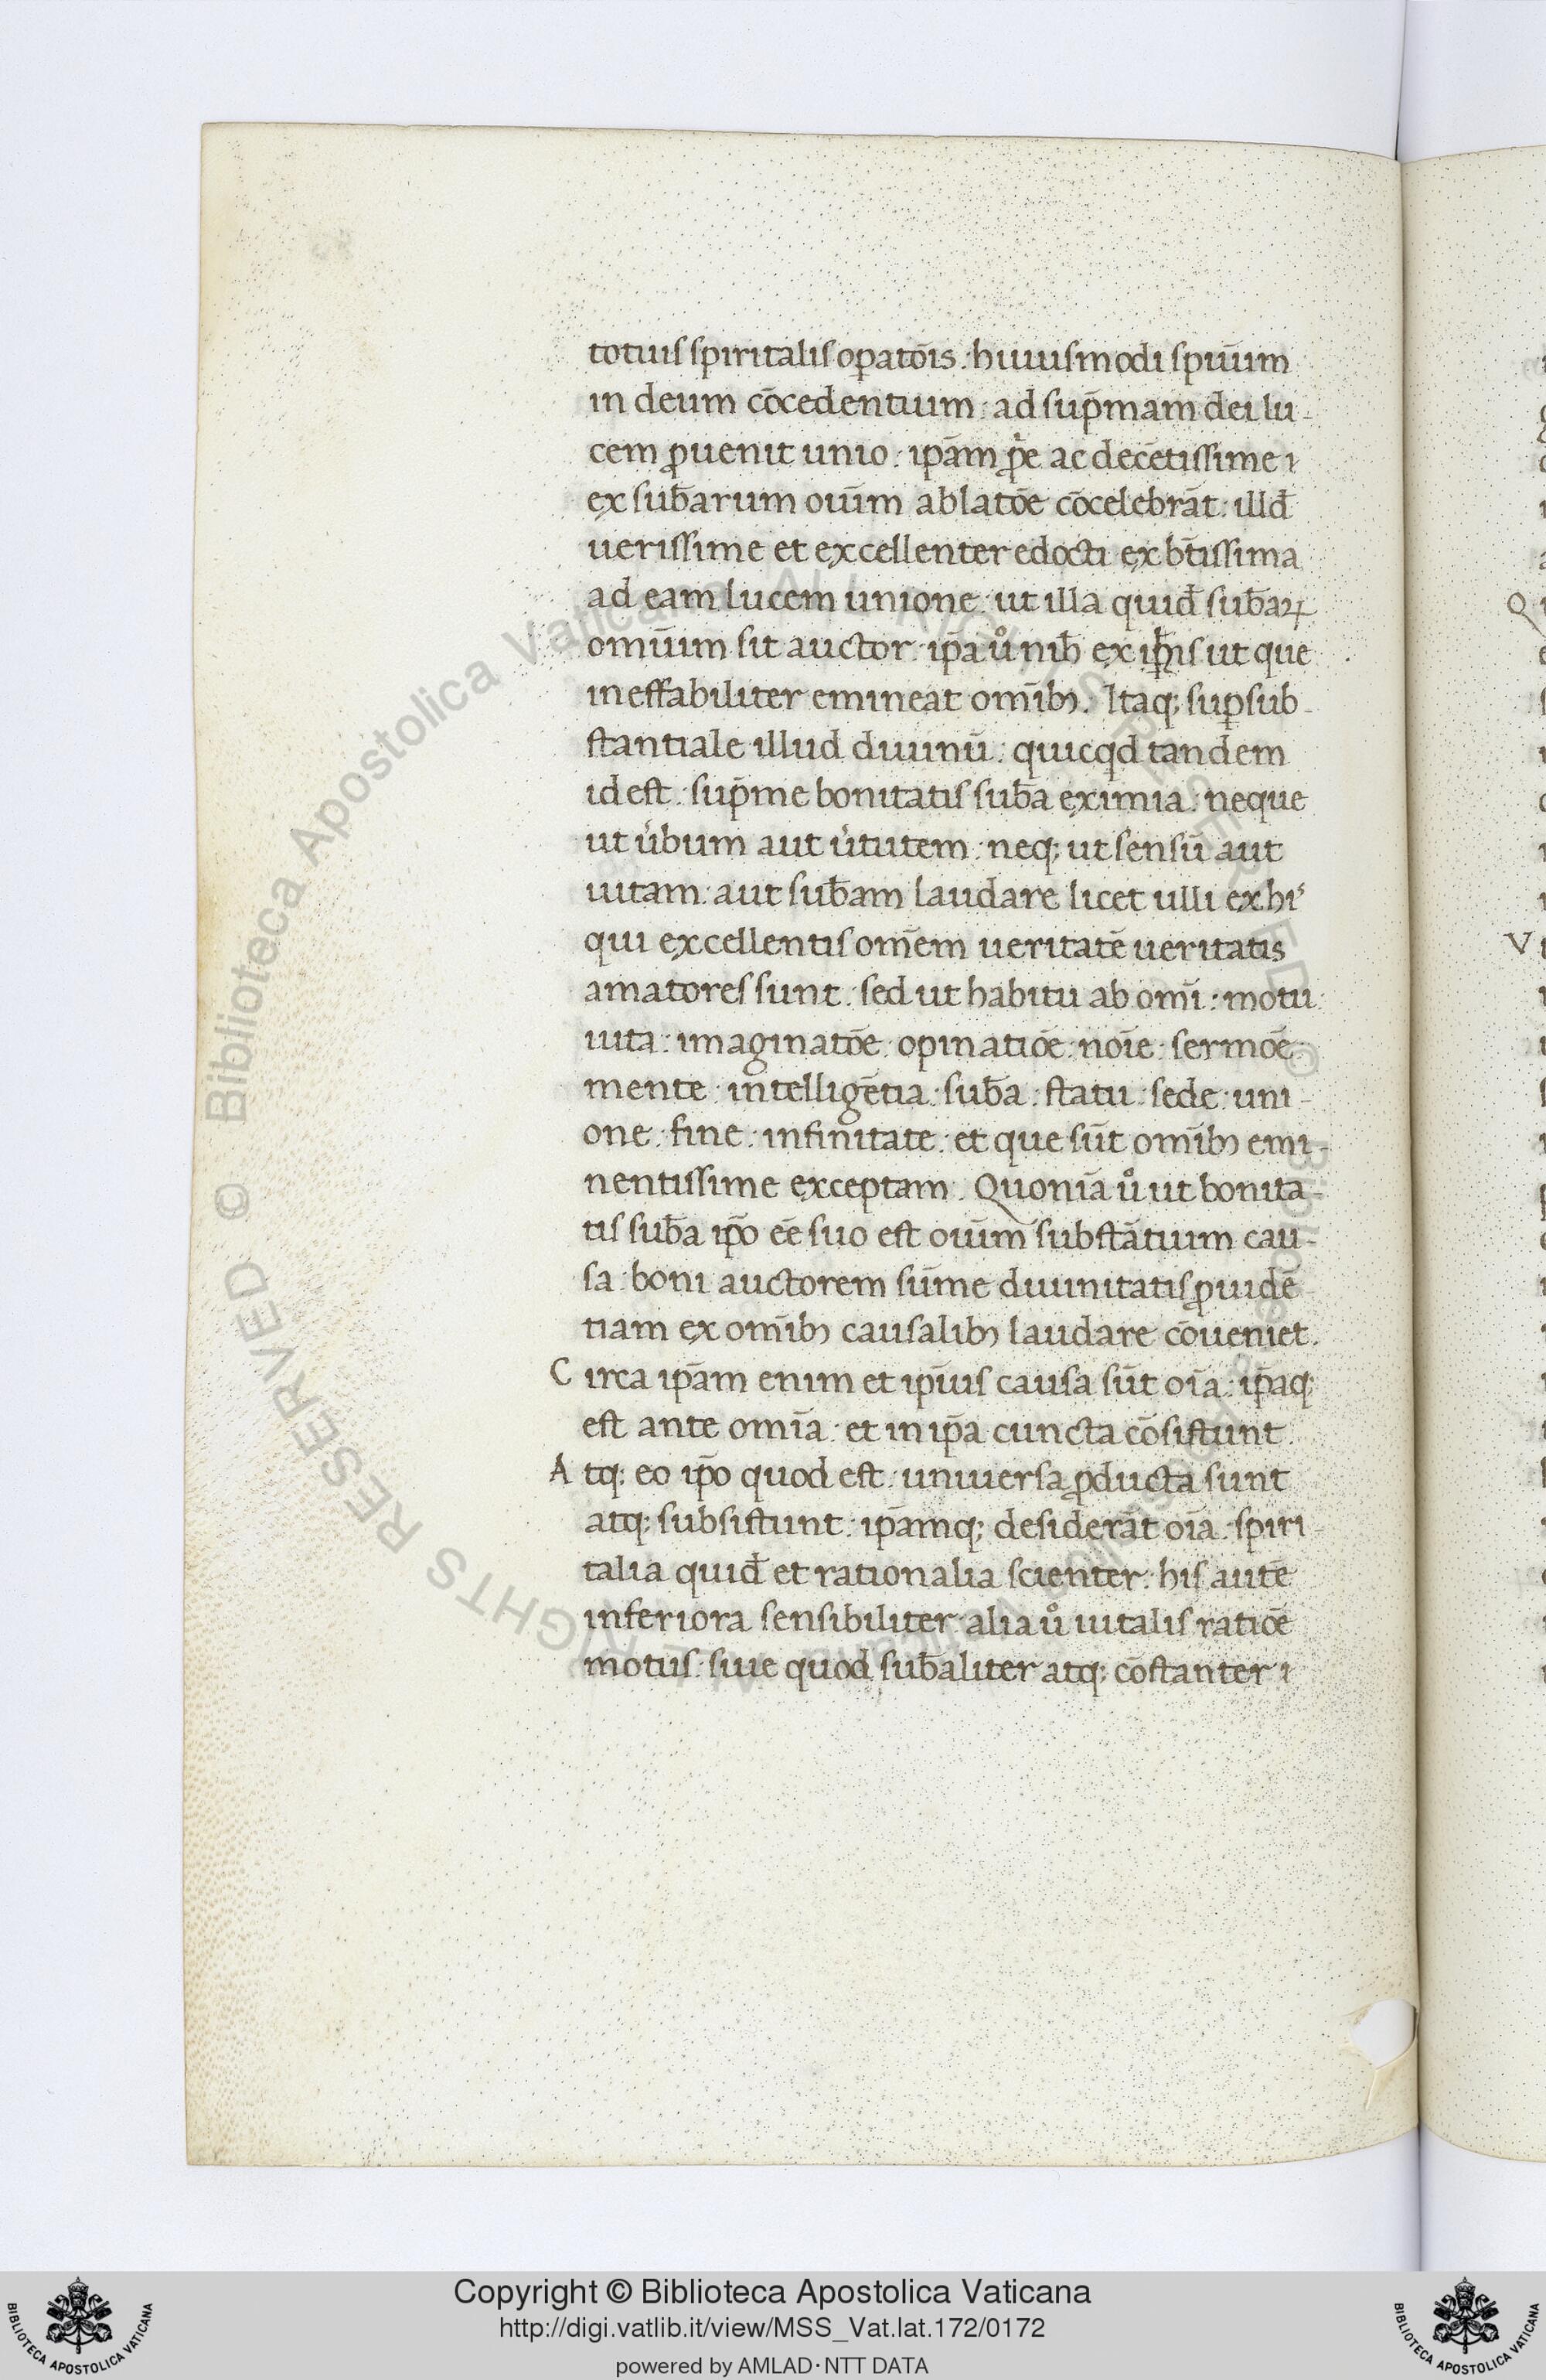 totius spiritalis oꝑatōis : huiusmodi spūum
in deum cōcedentium : ad sup̄mam dei lu-
cem ꝓuenit unio : ip̄am ꝓ̍e ac decētissime ⁊
ex sub̄arum oiūm ablatōe cōcelebrāt : illd̄
uerissime et excellenter edocti ex b̄tissima
ad eam lucem unione : ut illa quid̄ sub̄aꝝ
omīum sit auctor : ip̄a ůo nih̄ ex ip̄is ut que
ineffabiliter emineat omībꝫ . Itaq; suꝑsub-
stantiale illud diuinū : quicqd tandem
id est : sup̄me bonitatis sub̄a eximia : neque
ut u̍bum aut u̍tutem : neq; ut sensū aut
uitam : aut sub̄am laudare licet ulli ex hi's
qui excellentis omēm ueritatē ueritatis
amatores sunt : sed ut habitu ab omī : motu :
uita : imaginatōe : opinatiōe : noīe : sermōe :
mente : intelligētia : sub̄a : statu : sede : uni-
one : fine : infinitate : et que sūt omībꝫ emi-
nentissime exceptam . Quoniā ůo ut bonita-
tis sub̄a ip̄o eē suo est oiūm substātium cau-
sa : boni auctorem sūme diuinitatis ꝓuidē
tiam ex omībꝫ causalibꝫ laudare cōueniet .
Circa ip̄am enim et ip̄ius causa sūt oīa : ip̄aq;
est ante omīa : et in ip̄a cuncta cōsistunt .
Atq; eo ip̄o quod est : uniuersa ꝓducta sunt
atq; subsistunt : ip̄amq; desiderāt oīa : spiri
talia quid̄ et rationalia scienter : his autē
inferiora sensibiliter : alia ůo uitalis ratiōe
motus : siue quod sub̄aliter atq; cōstanter ⁊
Q
V
Copyright © Biblioteca Apostolica Vaticana
http://digi.vatlib.it/view/MSS_Vat.lat.172/0172
powered by AMLAD·NTT DATA
BIBLIOTECA APOSTOLICA VATICANA
BIBLIOTECA APOSTOLICA VATICANA